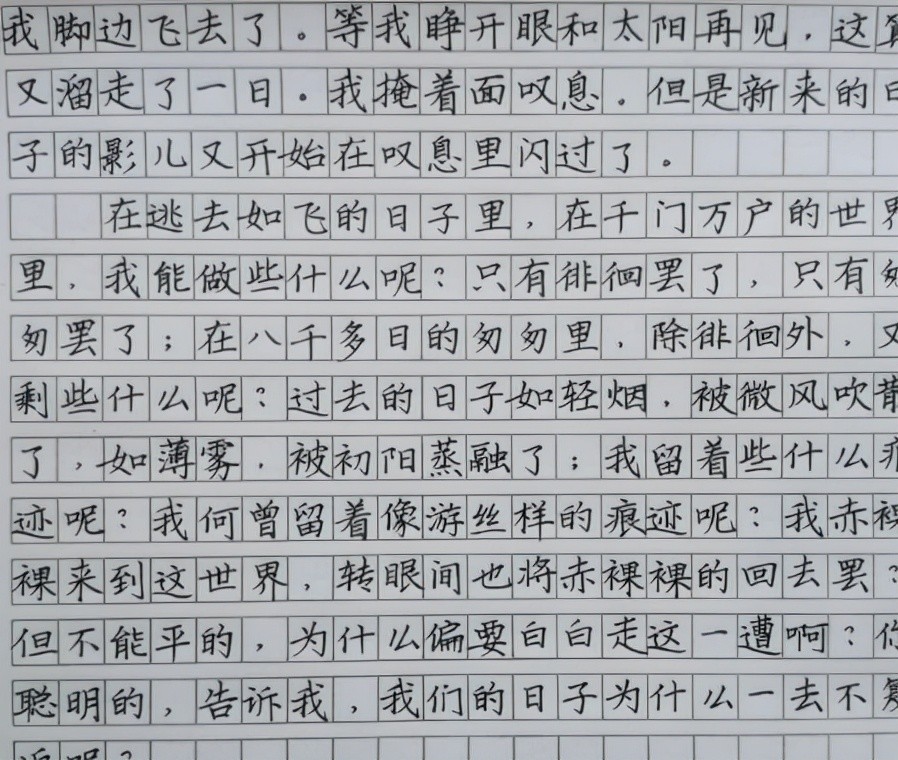 我脚边飞去了。等我睁开眼和太阳再见，这算
又溜走了一日。我掩着面叹息。但是新来的日
子的影儿又开始在叹息里闪过了。
在逃去如飞的日子里，在千门万户的世界
里，我能做些什么呢？只有徘徊罢了，只有匆
匆罢了；在八千多日的匆匆里，除徘徊外，又
剩些什么呢？过去的日子如轻烟，被微风吹散
了，如薄雾，被初阳蒸融了；我留着些什么痕
迹呢？我何曾留着像游丝样的痕迹呢？我赤裸
裸来到这世界，转眼间也将赤裸裸的回去罢？
但不能平的，为什么偏要白白走这一遭啊？你
聪明的，告诉我，我们的日子为什么一去不复
返呢？